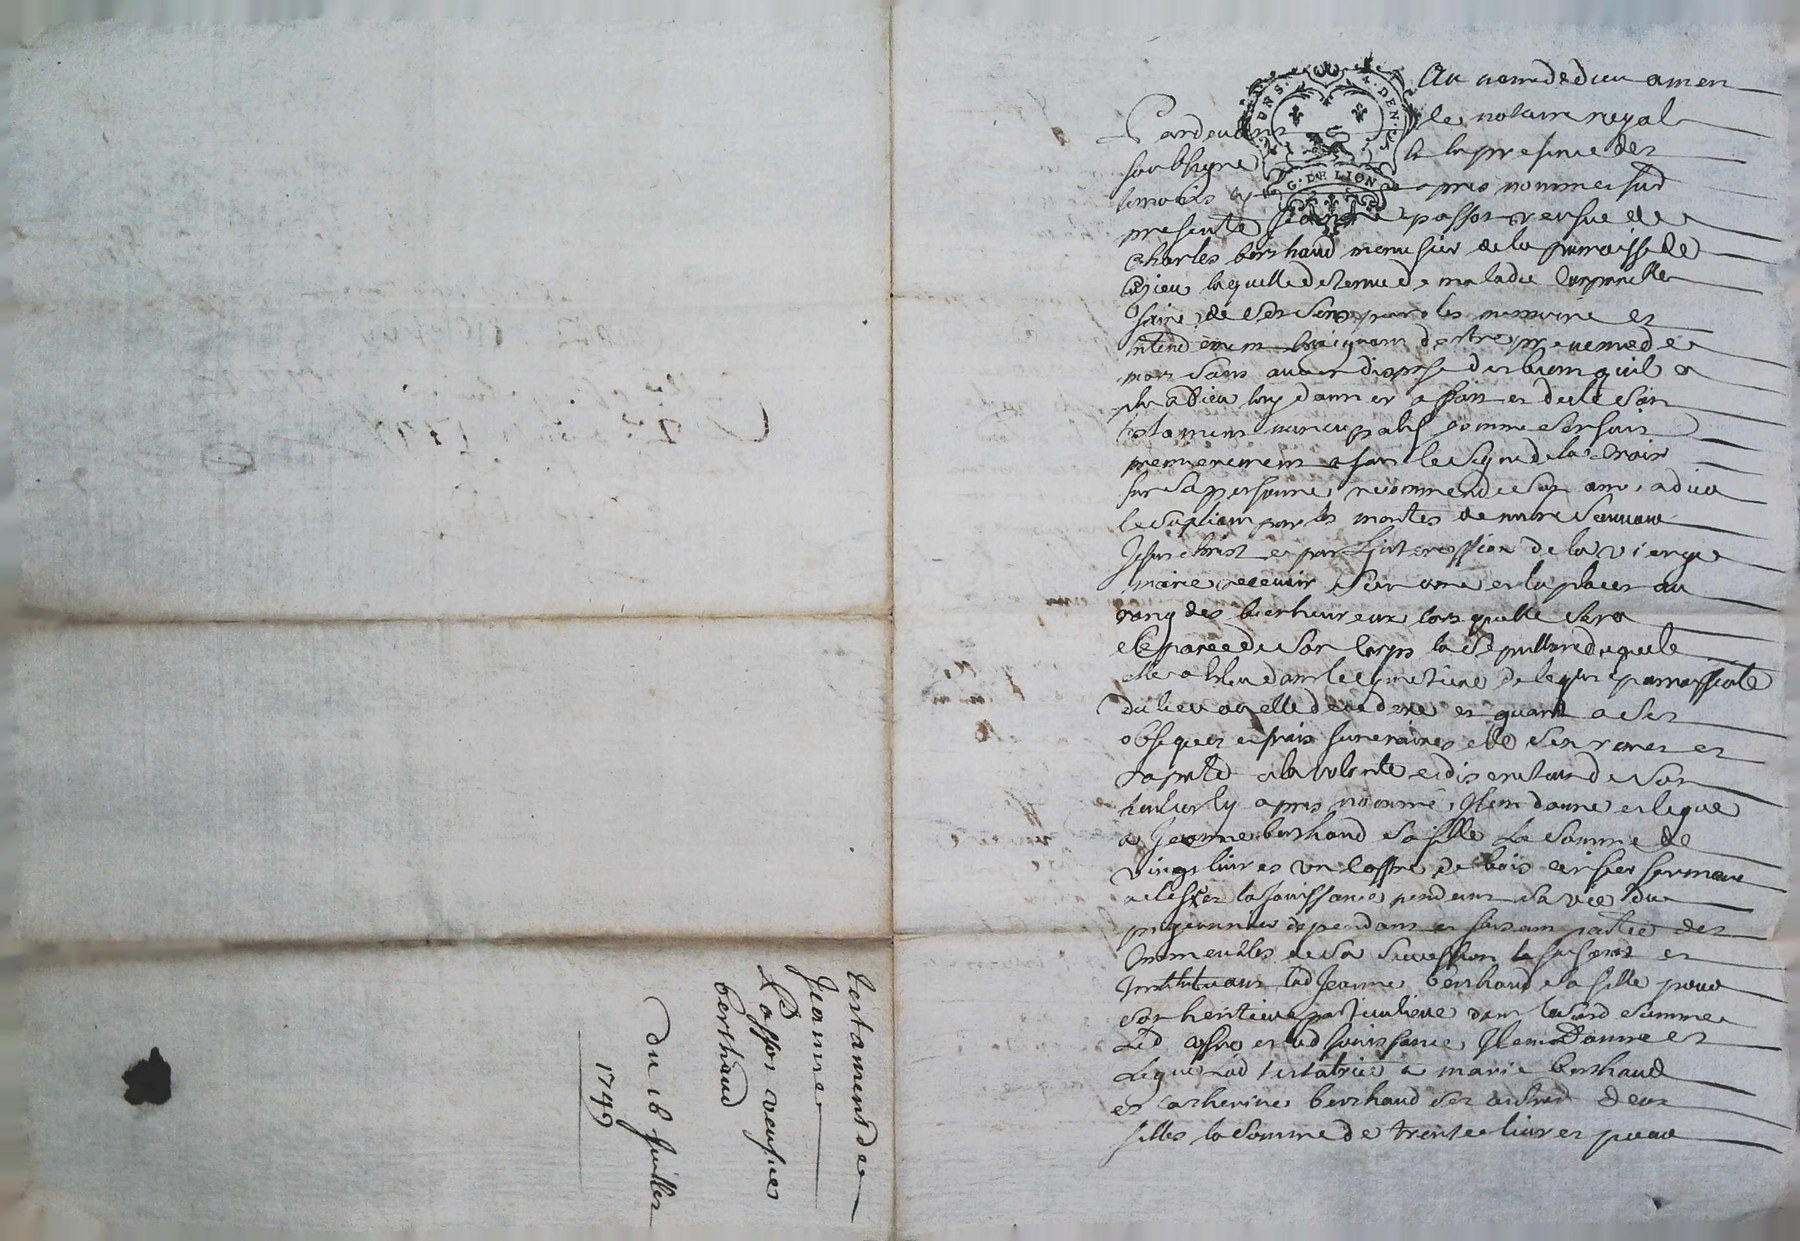 Au nom de dieu amen
Pardevant le notaire royal
soubsigné & la presence des
temoins cy apres nommes fut
presente Jeanne passot veufve de
Charles berthaud menusier de la parroisse de
laquelle detenue de maladie corporelle
saine de ses sens parolles memoire et
entendement craignant destre prevenue de
mort sans avoir dispose des biens quil a
plu a Dieu luy donner a fait et dicté son
testament nuncupatif comme sensuit
premierement a fait le signe de la Croix
sur sa personne, recommende son ame a dieu
le supliant par les merites de nostre sauveur
Jesus christ et par Lintercession de la vierge
marie recevoir son ame et la placer au
rang des bienheureux lors quelle sera
separée de son corps la sepulture duquel
elle a eleu dans le cymetiere de leglise parroissiale
du lieu ou elle decedera et quant a ses
obseques et frais funeraires elle sen remet et
raporte a la volonté et discretion de son
heritier cy apres nommé, Item donne et legue
a Jeanne berthaud sa fille la somme de
vingt livres un coffre de bois cerisier fermant
a clef et la jouissance pendant sa vie du
pigeonnier dependant et faisant partie des
Immeubles de sa succession la faisant et
Instituant lad Jeanne berthaud sa fille pour
son heritiere particuliere dans lad somme
Led coffre et lad jouissance, Item Donne et
Legue Lad testatrice a marie berthaud
et Catherine berthaud ses autres deux
filles la somme de trente livres pour
G. DE LION
testament de
Jeanne
Passot veufve
berthaud
du 16 Juillet
1749